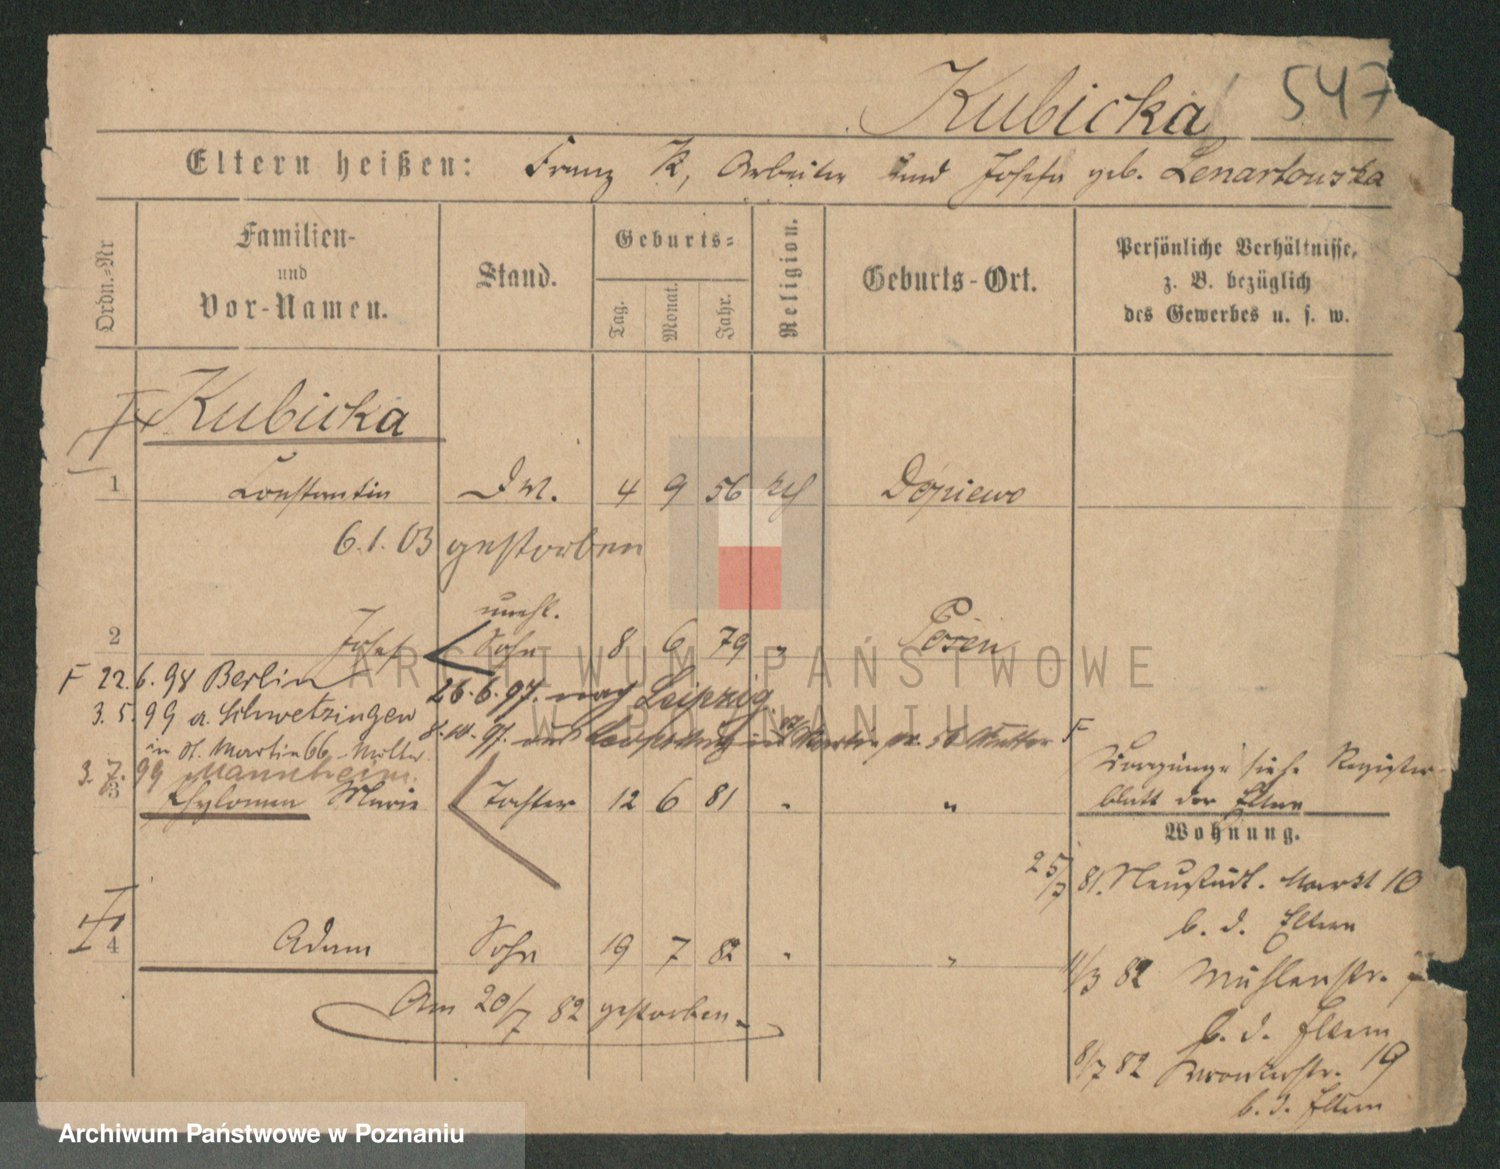 Kubicka 547
Eltern heißen: Franz K, Arbeiter und Josefa geb. Lenartowska
Ordn.-Nr
Familien-
und
Vor-Namen.
Stand.
Geburts-
Tag.
Monat.
Jahr.
Religion.
Geburts-Ort.
Persönliche Verhältnisse,
z. B. bezüglich
des Gewerbes u. s. w.
Kubicka
1 Constantin 4 9 56 Dopiewo
6.1.03 gestorben
unehl.
2 Josef Sohn 8 6 79 " Posen
F 22.6.98 Berlin 26.6.97. nach Leipzig
3.5.99 a. Schwetzingen
in St. Martin 66 Mutter
3.7.99 Mannheim.
8.10.97. aus Leipzig in St. Martin 56 Mutter F
Vorgänge siehe Register-
blatt der Eltern
3 Phylomena Marie Tochter 12 6 81 " "
Wohnung.
25/7 81. Neustädt. Markt 10
b. d. Eltern
4 Adam Sohn 19 7 82 " "
11/3 82 Mühlenstr.
Am 20/7 82 gestorben.
b. d. Eltern
8/7 82 Wronkerstr. 19
b. d. Eltern
ARCHIWUM PAŃSTWOWE
W POZNANIU
Archiwum Państwowe w Poznaniu